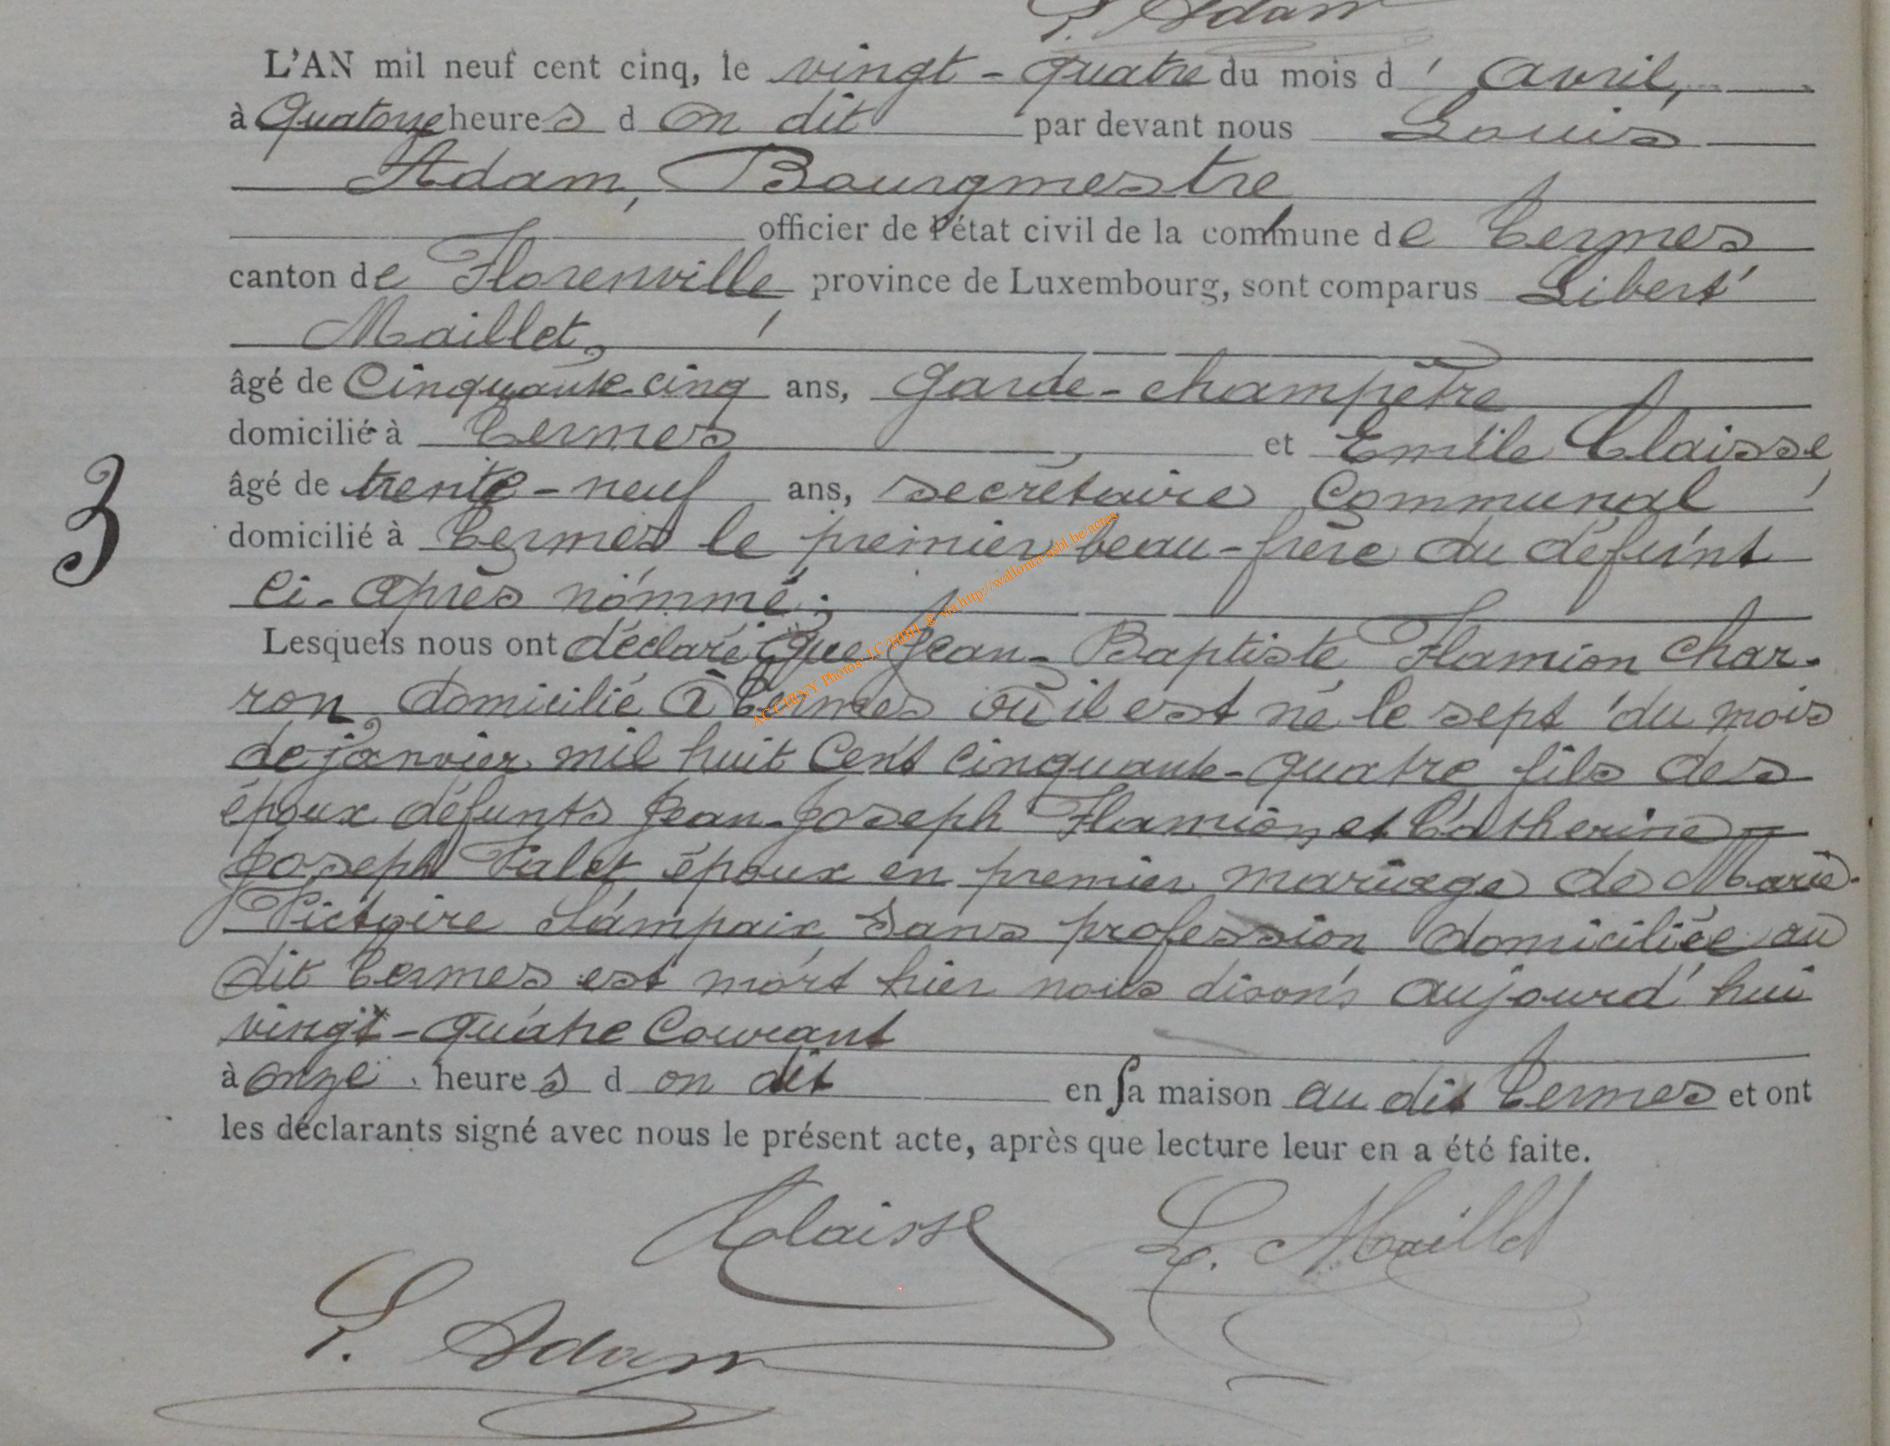 L. Adam
L'AN mil neuf cent cinq, le vingt-quatre du mois d'avril,
à Quatorze heures d on dit par devant nous Louis
Adam, Bourgmestre
officier de l'état civil de la commune de Termes
canton de Florenville, province de Luxembourg, sont comparus Libert
Maillet,
âgé de Cinquante-cinq ans, Garde-champêtre
domicilié à Termes et Emile Claisse,
âgé de trente-neuf ans, secrétaire Communal
domicilié à Termes le premier beau-frère du défunt
ci-après nommé;
Lesquels nous ont déclaré que Jean-Baptiste Flamion char-
ron, domicilié à Termes où il est né le sept du mois
de janvier mil huit cent cinquante-quatre fils des
époux défunts Jean-Joseph Flamion et Catherine
Joseph Valet époux en premier mariage de Marie-
Victoire Lampaix sans profession domiciliée au
dit Termes est mort hier nous disons aujourd'hui
vingt-quatre Courant
à onze heures d on dit en sa maison au dit Termes et ont
les déclarants signé avec nous le présent acte, après que lecture leur en a été faite.
3
ACCLRNY Photos via http://wallonia-asbl.be/actes
Claisse
L. Maillet
L. Adam